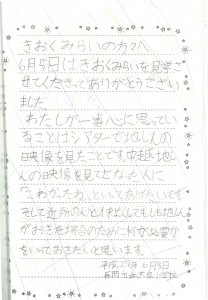 きおくみらいの方々へ
6月8日はきおくみらいを見学さ
せてくださってありがとうござい
ました。
わたしが一番心に思ってい
ることはシアターで地しんの
映像を見たことです。中越地し
んの映像を見てとなった人に
「こわかったね。」といってあげたいです
そして近所の人と仲よくしてもしも地しん
がおきた場合のために
をいておきたいと思います。
平成25年 6月8日
長岡市立